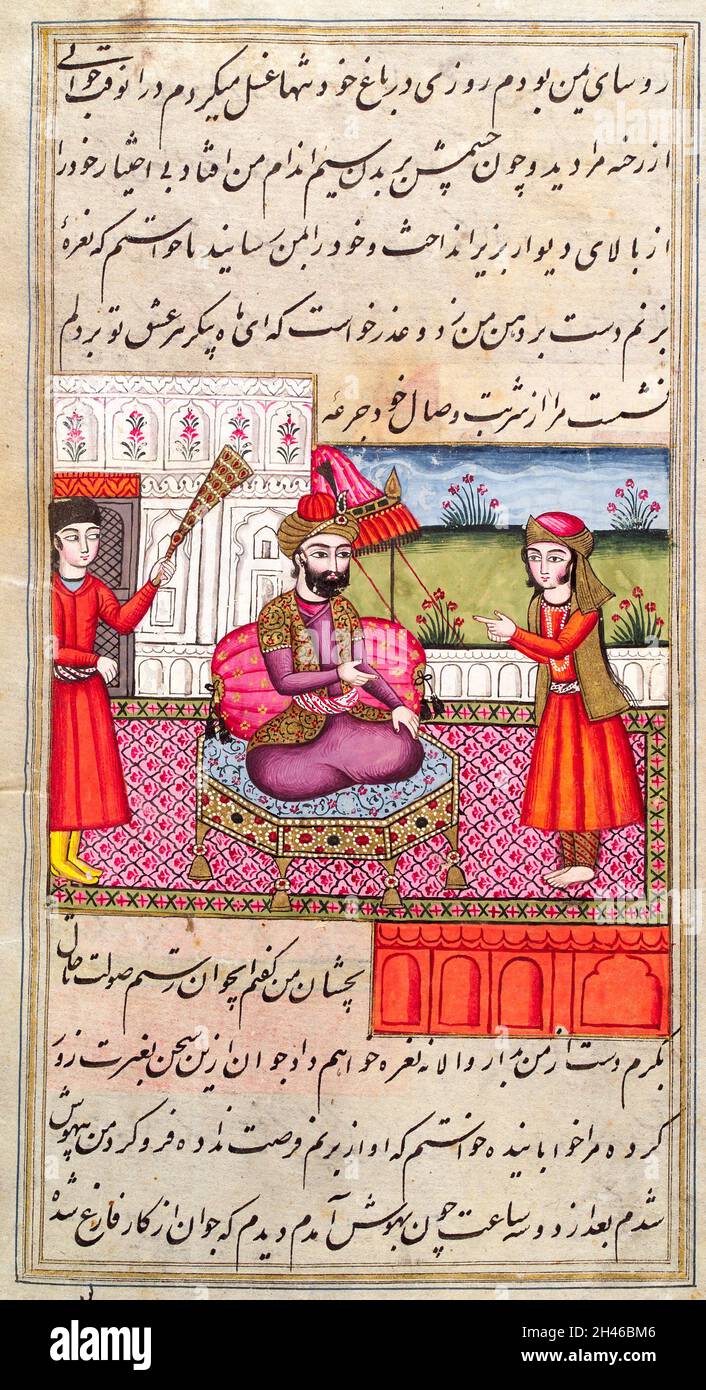 روسای یمن بودم روزی در باغ خود تنها غسل میکردم در انوقت جوانی
از رخنه مرا دید و چون چشمش بر بدن سیم اندام من افتاد بی اختیار خود را
از بالای دیوار بزیر انداخت و خود را بمن رسانید تا خواستم که نعرهٔ
بزنم دست بر دهن من زد و عذر خواست که ای ماه پیکر مر عشق تو بر دلم
نشست مرا از شربت وصال خود جرعهٔ
بچشان من گفتم ایجوان رستم صولت تا حال
نکرم دست از من بدار والا نه نعره خواهم داد جوان ازین سخن بغیرت
کرده مرا خوابانیده خواستم که اواز برنم فرصت نداده فرو کرد من بیهوش
شدم بعد از دو سه ساعت چون بهوش آمدم دیدم که جوان از کار فارغ شده
alamy
Image ID: 2H46BM6
www.alamy.com